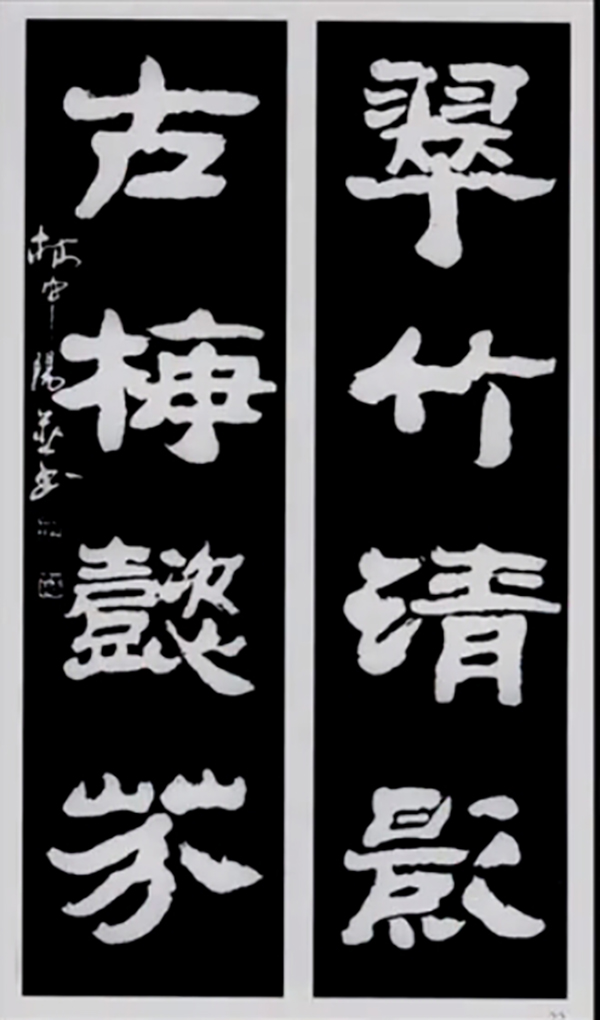 翠竹清影
古梅懿芬